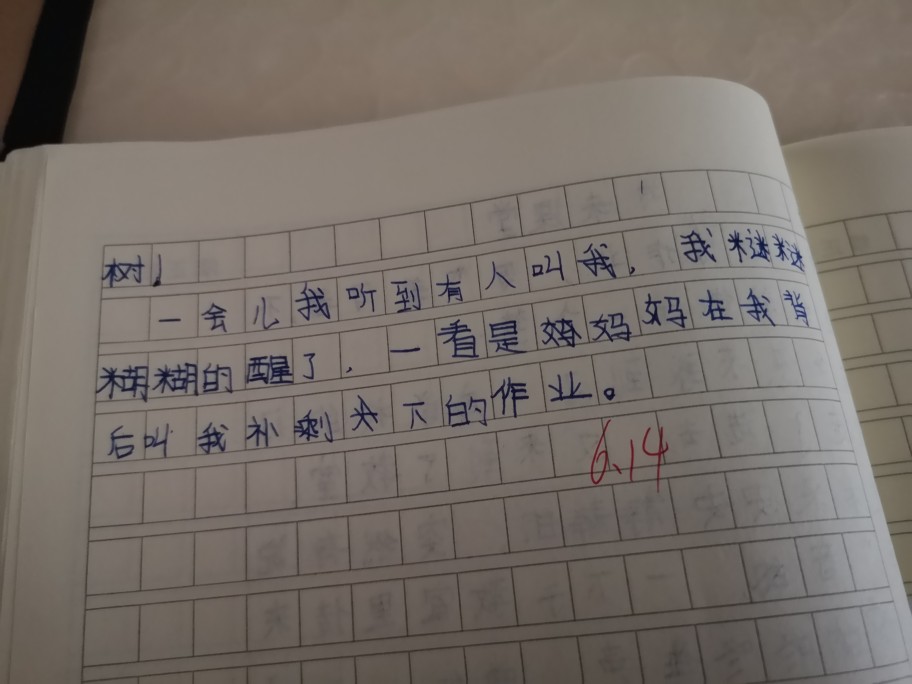 树！
一会儿我听到有人叫我，我迷迷
糊糊的醒了，一看是妈妈在我背
后叫我补剩下的作业。
6.14